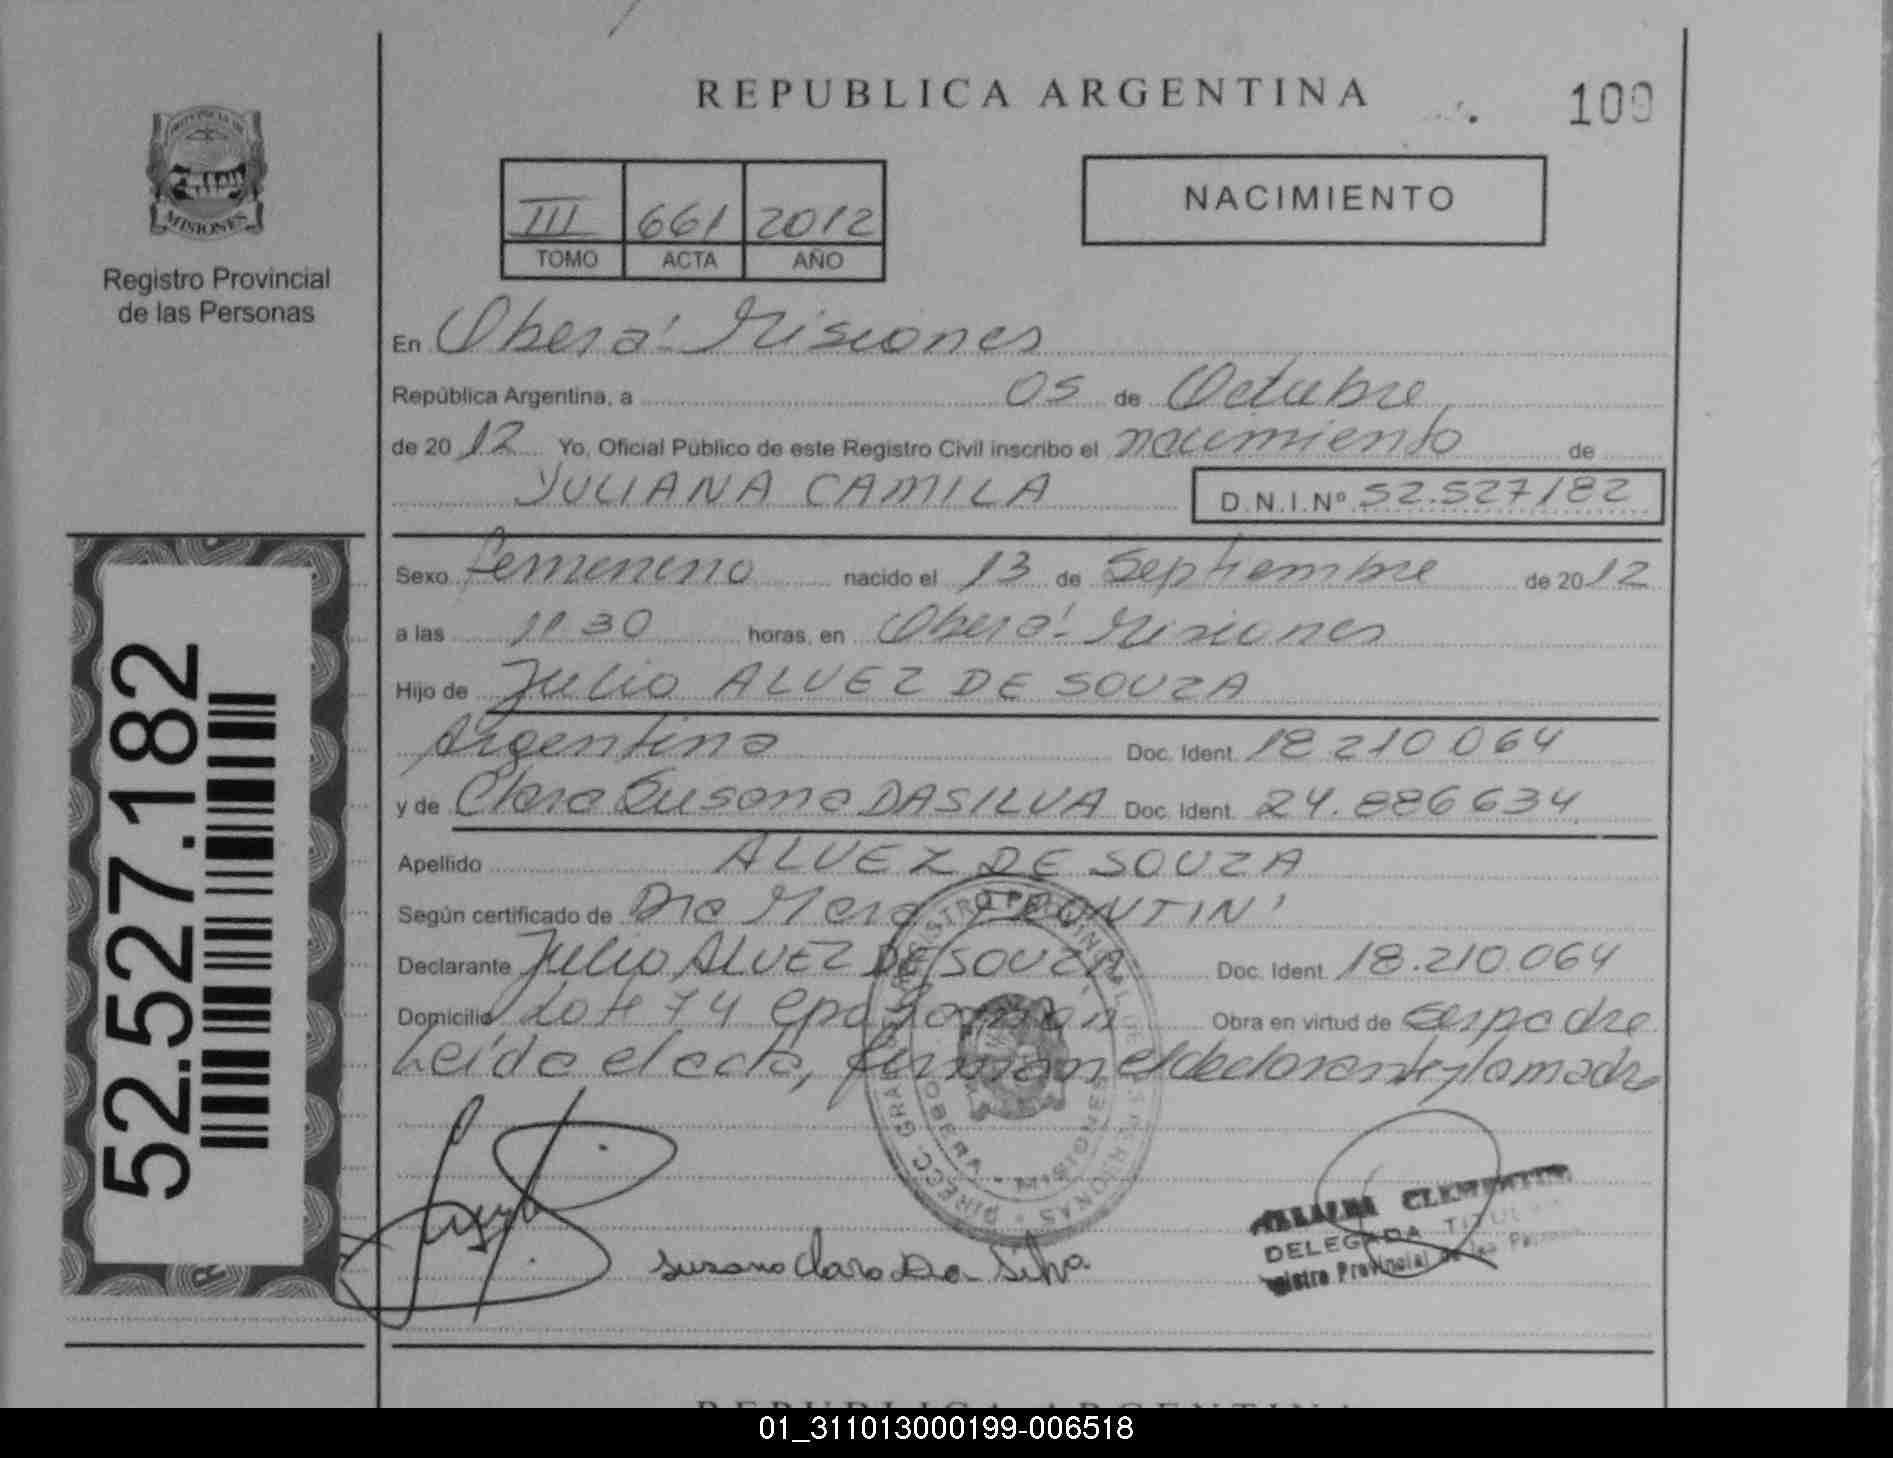 REPUBLICA ARGENTINA
100
PROVINCIA DE
MISIONES
Registro Provincial
de las Personas
III 661 2012
TOMO ACTA AÑO
NACIMIENTO
En Oberá - Misiones
República Argentina, a 05 de Octubre
de 2012 Yo, Oficial Público de este Registro Civil inscribo el nacimiento de
YULIANA CAMILA D.N.I.Nº 52.527182
Sexo femenino nacido el 13 de Septiembre de 2012
a las 11 30 horas, en Oberá - Misiones
Hijo de Julio ALVEZ DE SOUZA
Argentina Doc. Ident. 18 210 064
y de Clara Susana DASILVA Doc. Ident. 24.886634
Apellido ALVEZ DE SOUZA
Según certificado de Dra
Declarante Julio ALVEZ DE SOUZA Doc. Ident. 18.210.064
Domicilio Lote 74 Obra en virtud de ser padre
Leída el acta, firman el declarante y la madre
52.527.182
Susana Clara Da Silva
CLEMENTIN
DELEGADA TITULAR
Registro Provincial de las Personas
DIRECC. GRAL. DEL REGISTRO PROVINCIAL DE LAS PERSONAS
OBERA - MISIONES
REPUBLICA ARGENTINA
01_311013000199-006518